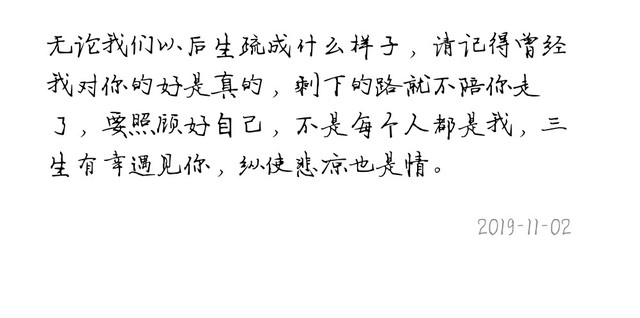 无论我们以后生疏成什么样子，请记得曾经
我对你的好是真的，剩下的路就不陪你走
了，要照顾好自己，不是每个人都是我，三
生有幸遇见你，纵使悲凉也是情。
2019-11-02